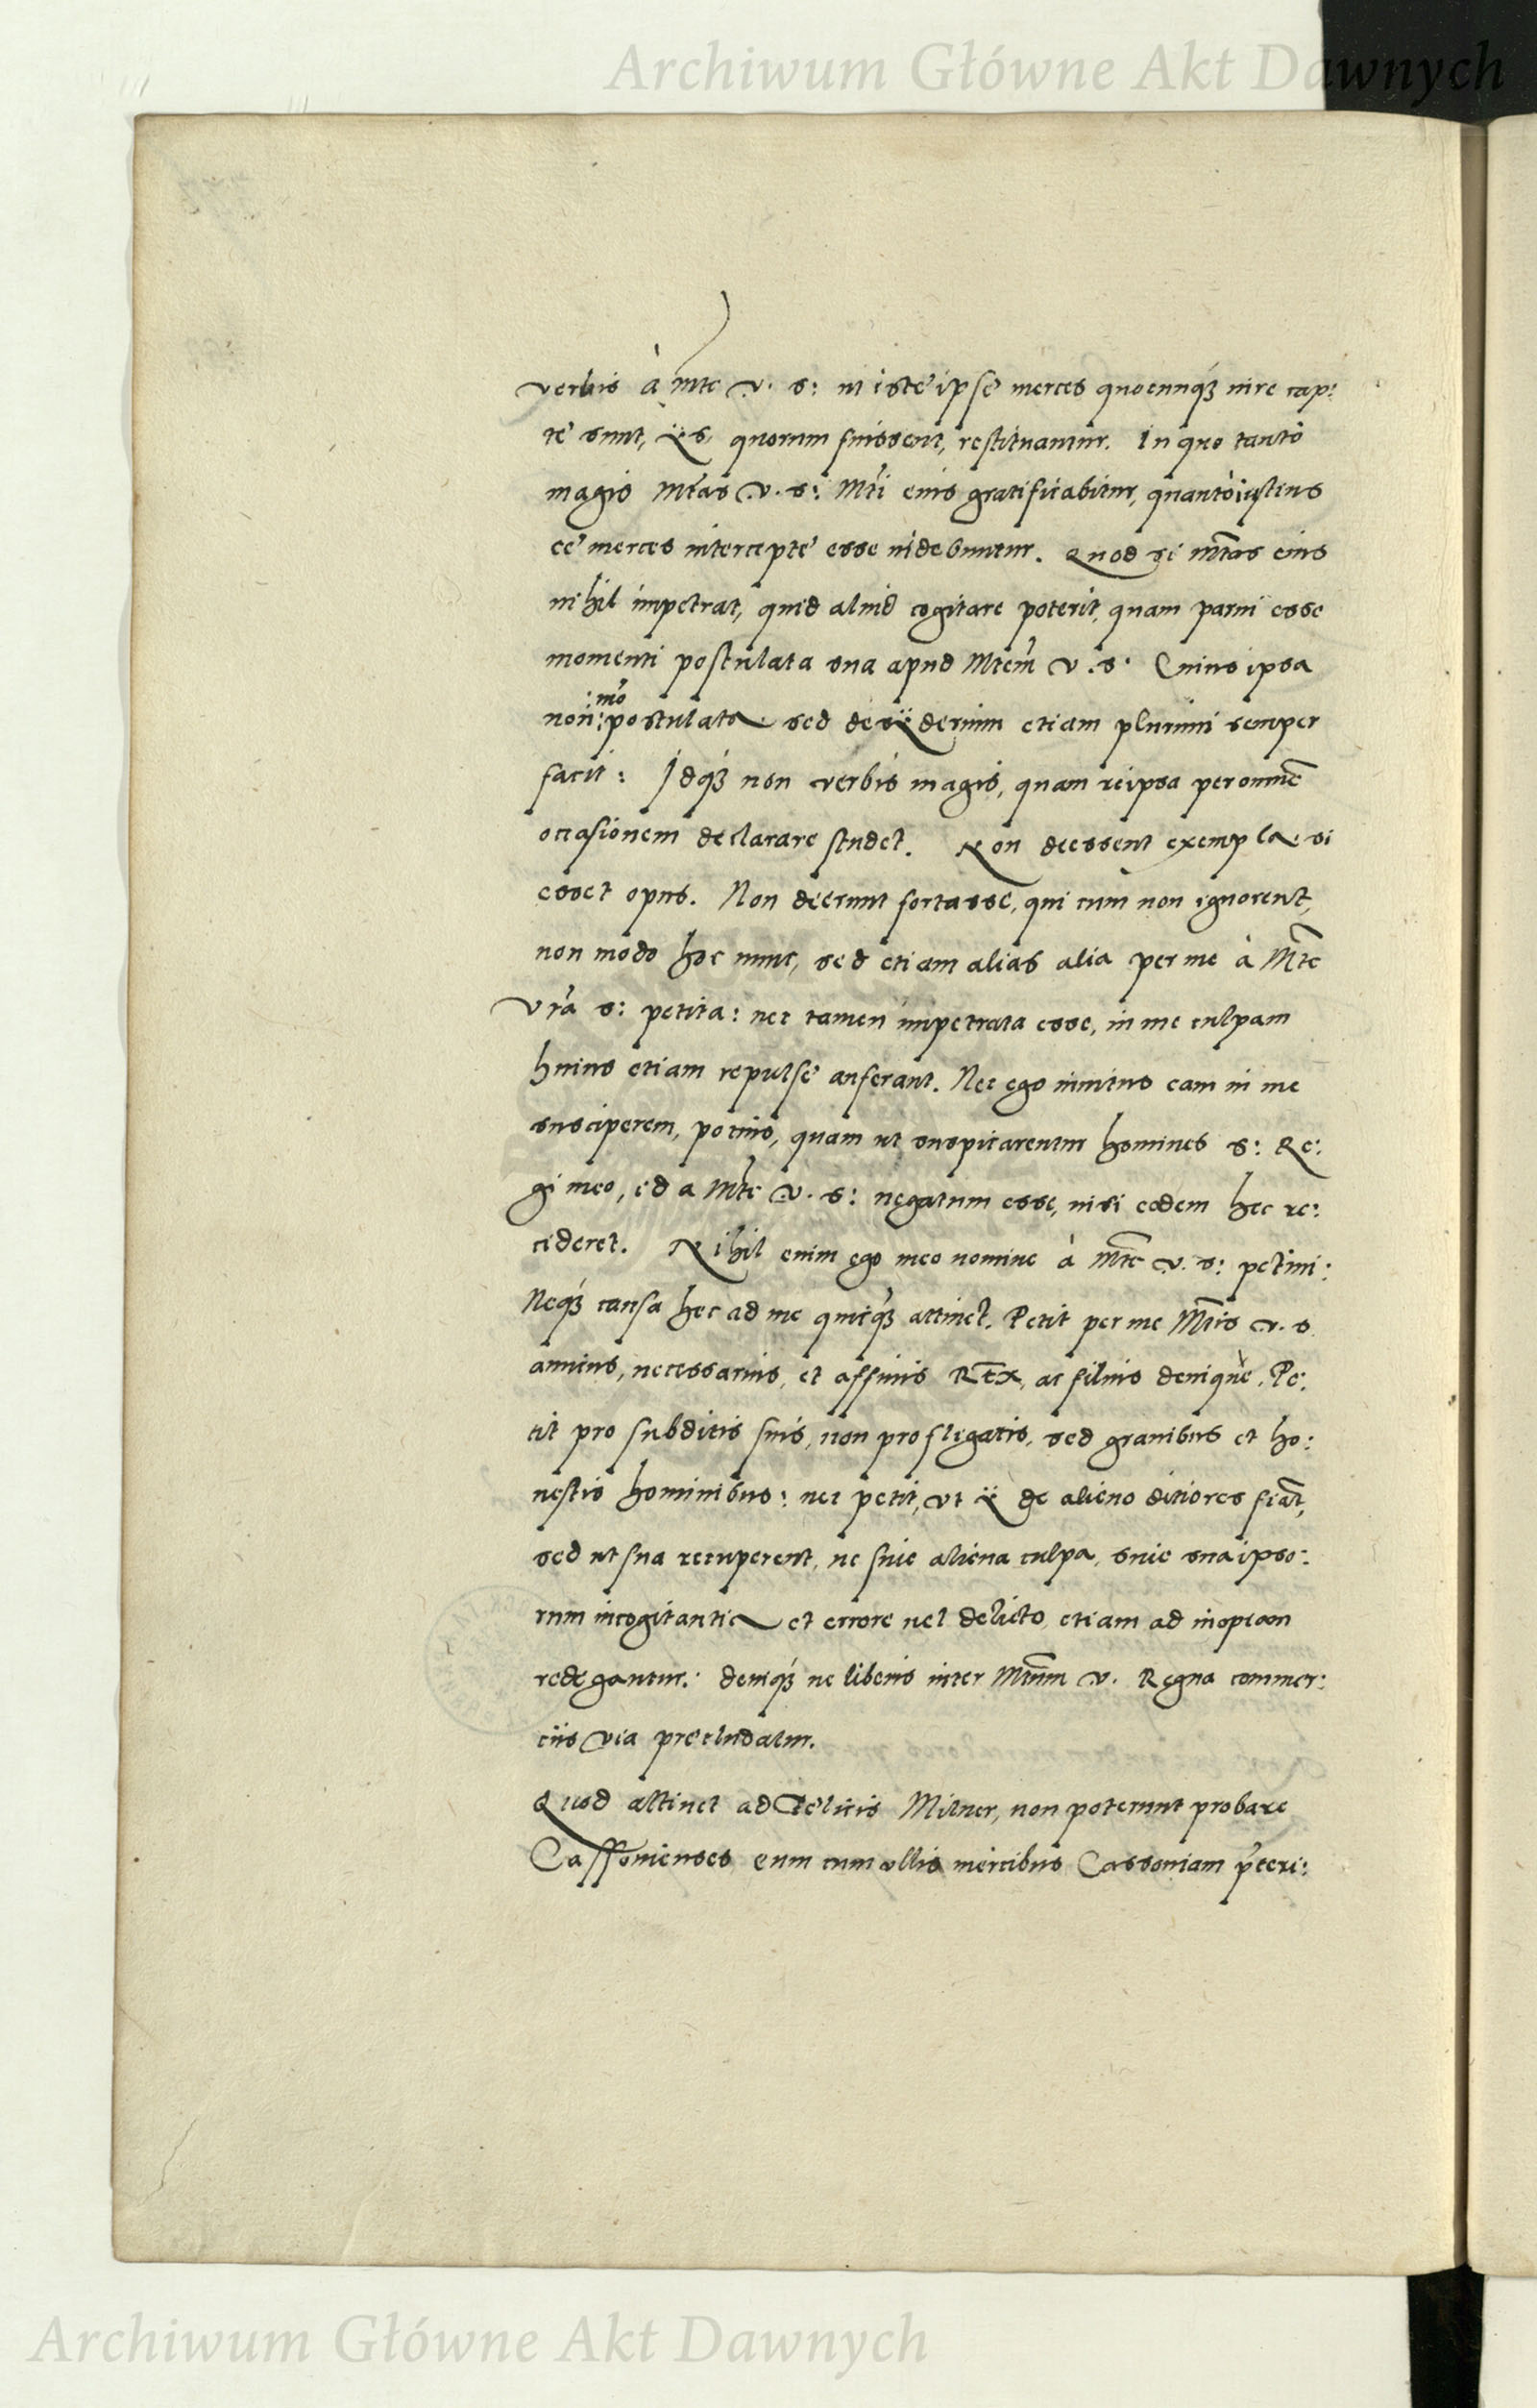 Archiwum Główne Akt Dawnych
verbis à Mte v. s: ut istę ipsę merces quocunq́ꝫ iure cap:
tę sunt, ÿs, quorum fuissent, restituantur. In quo tanto
magis Mtas v. s: Mti eius gratificabitur, quantò iustius
eę merces interceptę esse uidebuntur. Quod si Mtas eius
nihil impetrat, quid aliud cogitare poterit, quam parui esse
momenti postulata sua apud Mtem v. s. Cuius ipsa
:mo
non: postulata sed desÿderium etiam plurimi semper
facit: Idq́ꝫ non verbis magis, quam reipsa per omnē
occasionem declarare studet. Non deessent exempla si
esset opus. Non deerunt fortasse, qui cum non ignorent,
non modo hoc nunc, sed etiam alias alia per me à Mte
vrā s: petita: nec tamen impetrata esse, in me culpam
huius etiam repulsę auferant. Nec ego inuitus eam in me
susciperem, potius, quam ut suspicarentur homines s: Re:
gi meo, id a Mte v. s: negatum esse, nisi eodem hec re:
cideret. Nihil enim ego meo nomine à Mte v. s: petiui:
Neq́ꝫ causa hec ad me quicq́ꝫ attinet. Petit per me Mtis v. s
amicus, necessarius, et affinis REX, ac filius deniquè. Pe:
tit pro subditis suis, non profligatis, sed grauibus et ho:
nestis hominibus: nec petit, vt ÿ de alieno ditiores fiāt,
sed ut sua recuperent, ne siue aliena culpa, siue sua ipso:
rum incogitantia et errore uel delicto, etiam ad inopiam
redigantur: deniq́ꝫ ne liberis inter Mtum v. Regna commer:
ciis via pręcludatur.
Quod attinet ad Felicis Milner, non poterunt probare
Cassouienses eum cum ullis mercibus Cassouiam p̄teri:
Archiwum Główne Akt Dawnych